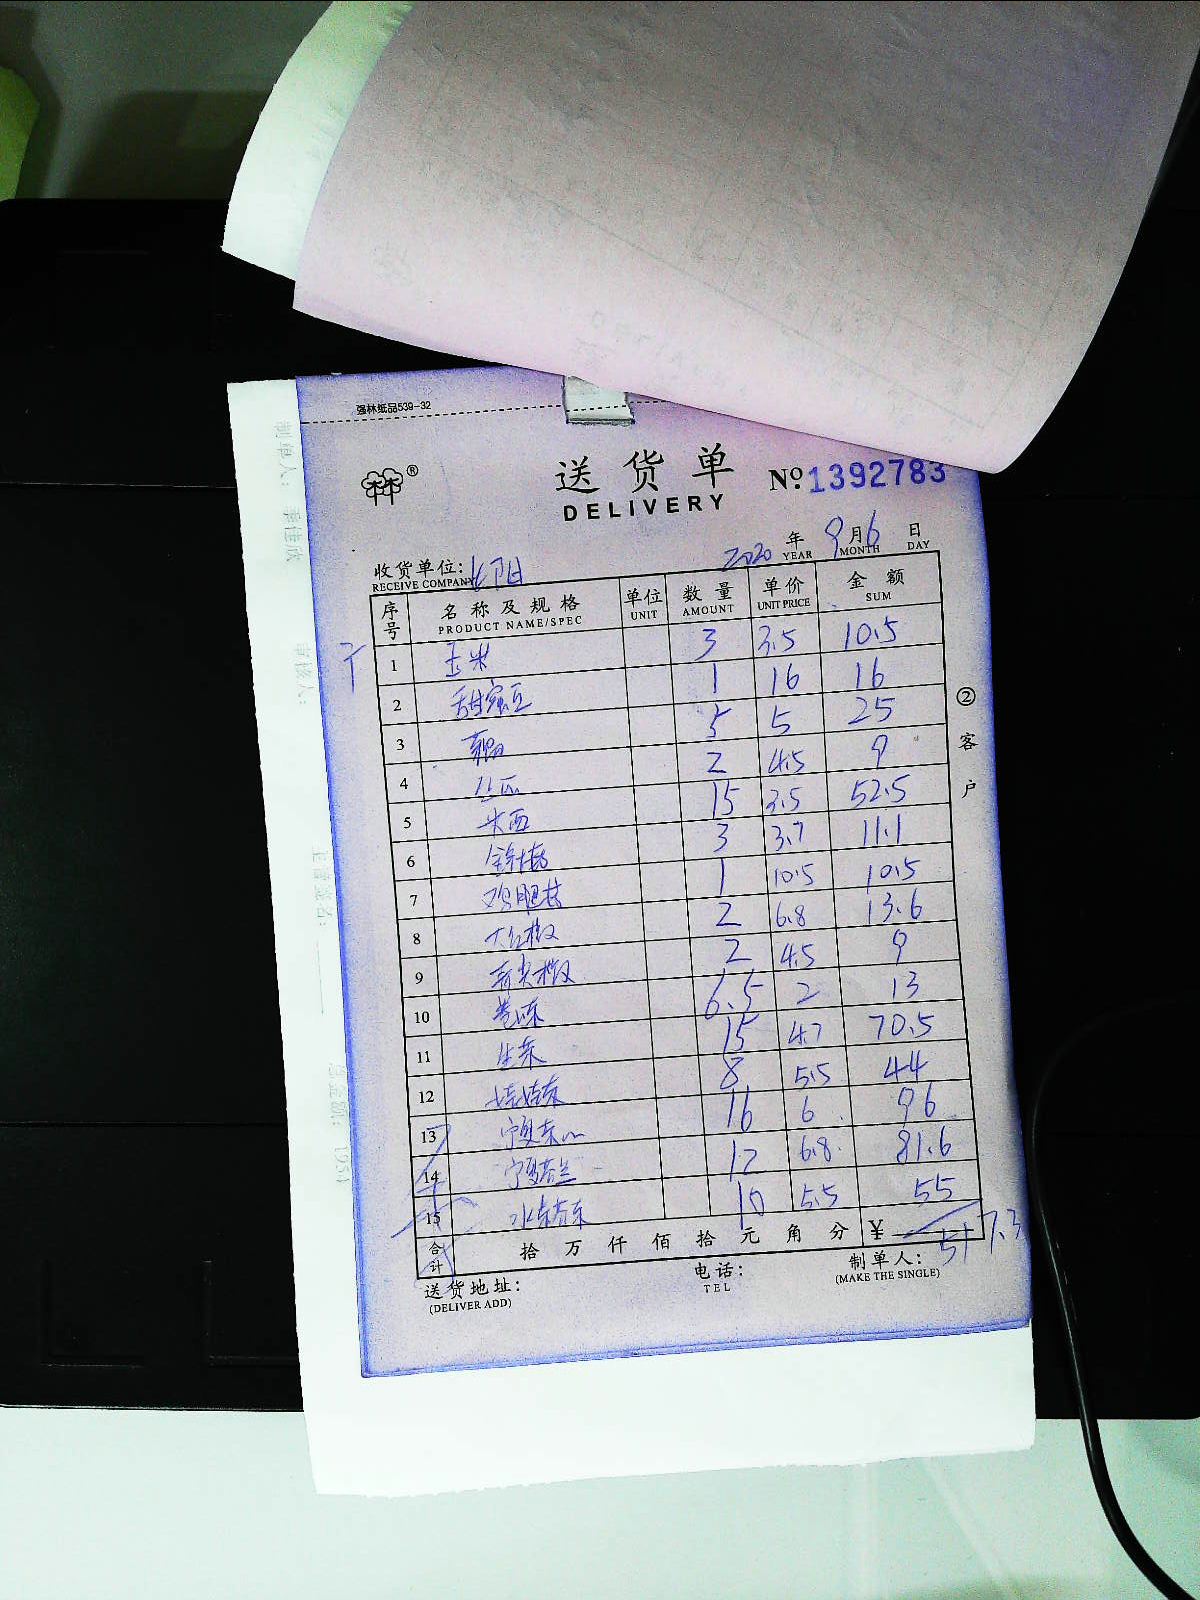 强林纸品539-32
®
送货单 Nº:1392783
DELIVERY
收货单位: 2020 年 9 月 6 日
RECEIVE COMPANY YEAR MONTH DAY
序号 名称及规格 单位 数量 单价 金额
PRODUCT NAME/SPEC UNIT AMOUNT UNIT PRICE SUM
1 玉米 3 3.5 10.5
2 甜蜜豆 1 16 16
3 5 5 25
4 2 4.5 9
5 15 3.5 52.5
6 金针菇 3 3.7 11.1
7 鸡腿菇 1 10.5 10.5
8 大红椒 2 6.8 13.6
9 青尖椒 2 4.5 9
10 6.5 2 13
11 生菜 15 4.7 70.5
12 娃娃菜 8 5.5 44
13 宁夏菜心 16 6 96
14 宁夏芥兰 12 6.8 81.6
15 10 5.5 55
合计 拾 万 仟 佰 拾 元 角 分 ¥ 517.3
送货地址: 电话: 制单人:
(DELIVER ADD) TEL (MAKE THE SINGLE)
②客户
制单人:
审核人: